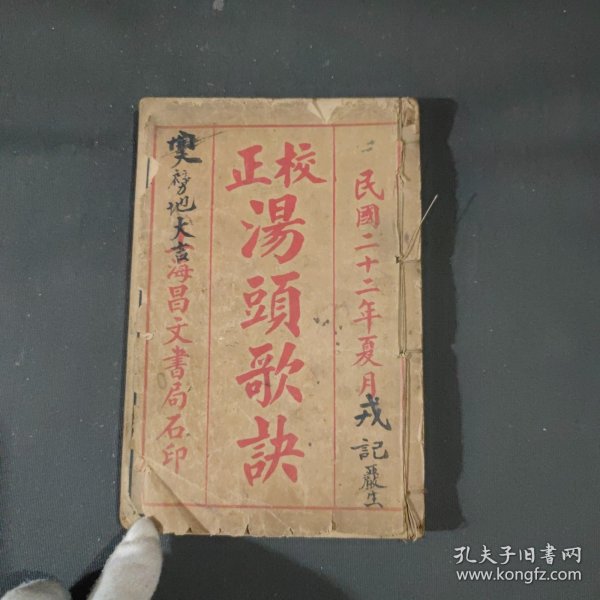 民國二十二年夏月
戎記
嚴生
校正
湯頭歌訣
地大吉
海昌文書局石印
孔夫子旧书网
www.kongfz.com